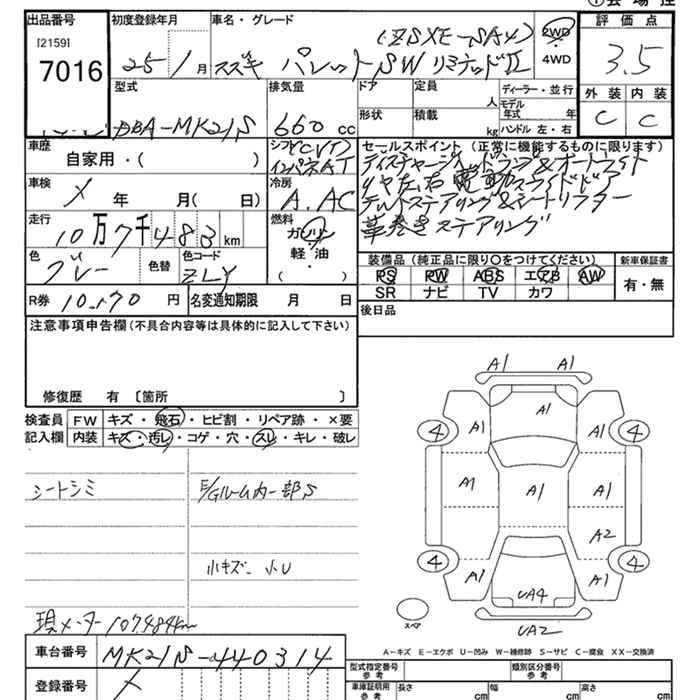 出品番号
[2159]
7016
初度登録年月
25/1月
車名・グレード
(ZSXE-SA4)
スズキ パレットSW リミテッドII
2WD
4WD
評価点
3.5
外装 内装
C C
型式
DBA-MK21S
排気量
660 cc
ドア
定員
人
形状
積載
kg
ディーラー・並行
モデル年式 年
ハンドル 左・右
車歴
自家用・( )
シフト(CVT)
インパネAT
セールスポイント (正常に機能するものに限ります)
ディスチャージヘッドランプ&オートライト
リヤ左右電動スライドドア
チルトステアリング&シートリフター
革巻きステアリング
車検
X 年 月( 日)
冷房
A.AC
走行
10万7千483km
燃料
ガソリン
軽油
( )
色
グレー
色替
色コード
ZLY
装備品 (純正品に限り○をつけてください)
PS PW ABS エアB AW
SR ナビ TV カワ
新車保証書
有・無
R券 10,170 円
名変通知期限 月 日
後日品
注意事項申告欄(不具合内容等は具体的に記入して下さい)
修復歴 有 〔箇所 〕
検査員記入欄
FW キズ・飛石・ヒビ割・リペア跡・×要
内装 キズ・汚レ・コゲ・穴・スレ・キレ・破レ
シートシミ
E/Gルーム内一部S
小キズ、小U
現メーター107484km
A1 A1
A1
4 A1 A1 4
A1 A1 A1
A2
4 A1 A1 4
UA4
UA2
スペア
A-キズ E-エクボ U-凹み W-補修跡 S-サビ C-腐食 XX-交換済
車台番号
MK21S-440314
登録番号
X
型式指定番号
参考
類別区分番号
参考
車庫証明用
参考
長さ cm
幅 cm
高さ cm